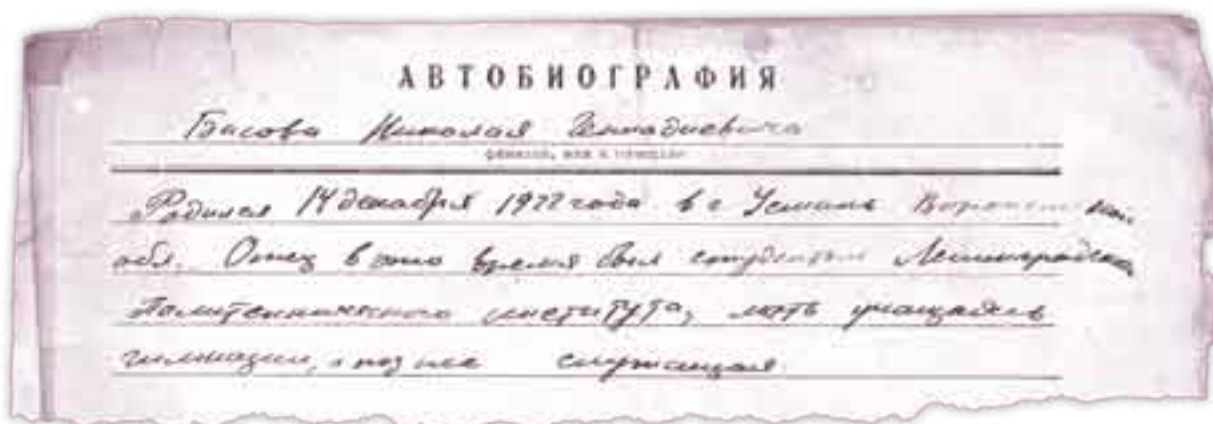 АВТОБИОГРАФИЯ
Басова Николая Геннадиевича
фамилия, имя и отчество
Родился 14 декабря 1922 года в г Усмань Воронежской
обл. Отец в это время был студентом Ленинградского
Политехнического института, мать учащаяся
гимназии, а позже служащая